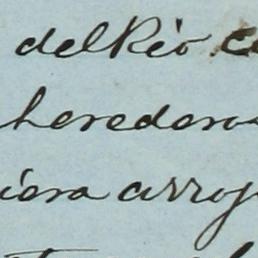 del Rio
heredero
iera arroy